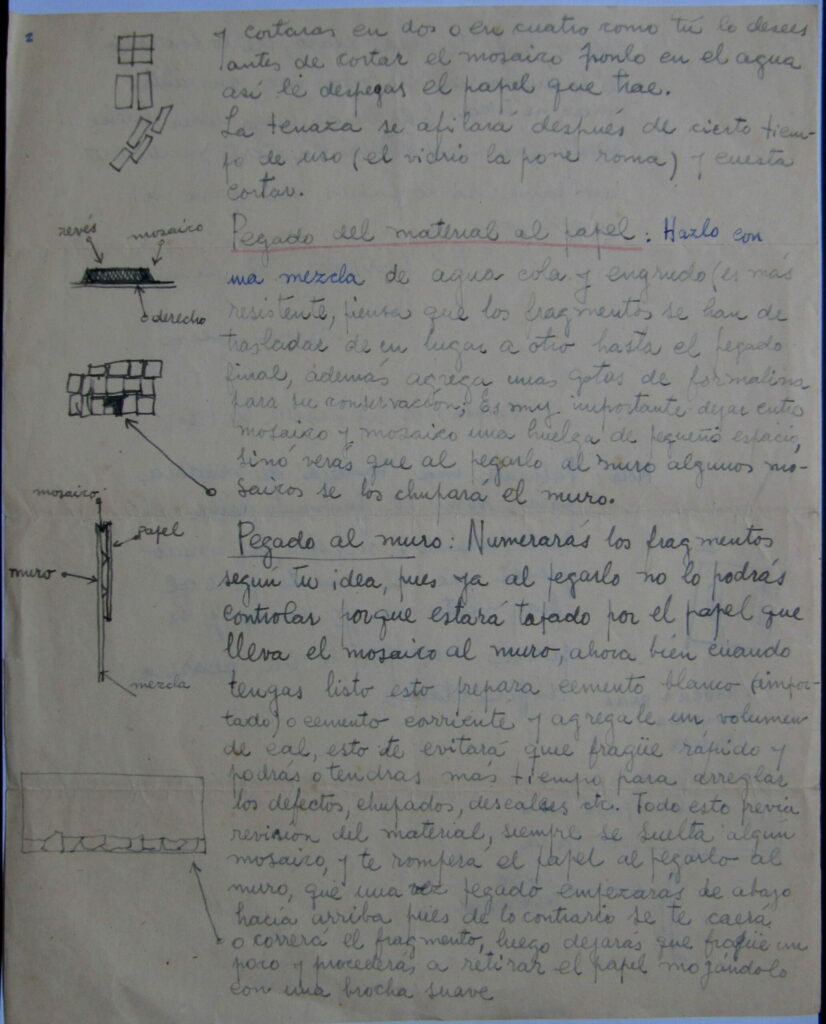 2
y cortaras en dos o en cuatro como tú lo desees
antes de cortar el mosaico ponlo en el agua
así le despegas el papel que trae.
La tenaza se afilará después de cierto tiem-
po de uso (el vidrio la pone roma) y cuesta
cortar.
revés
mosaico
derecho
Pegado del material al papel: Hazlo con
una mezcla de agua cola y engrudo (es más
resistente, piensa que los fragmentos se han de
trasladar de un lugar a otro hasta el pegado
final, además agrega unas gotas de formalina
para su conservación; Es muy importante dejar entre
mosaico y mosaico una huelga de pequeño espacio,
sinó verás que al pegarlo al muro algunos mo-
saicos se los chupará el muro.
mosaico
papel
muro
mezcla
Pegado al muro: Numerarás los fragmentos
segun tu idea, pues ya al pegarlo no lo podrás
controlar porque estará tapado por el papel que
lleva el mosaico al muro, ahora bien cuando
tengas listo esto prepara cemento blanco (impor-
tado) o cemento corriente y agregale un volumen
de cal, esto te evitará que fragüe rápido y
podrás o tendras más tiempo para arreglar
los defectos, chupados, etc. Todo esto previa
revisión del material, siempre se suelta algun
mosaico, y te romperá el papel al pegarlo al
muro, que una vez pegado empezarás de abajo
hacia arriba pues de lo contrario se te caerá
o correrá el fragmento, luego dejarás que fragüe un
poco y procederás a retirar el papel mojándolo
con una brocha suave